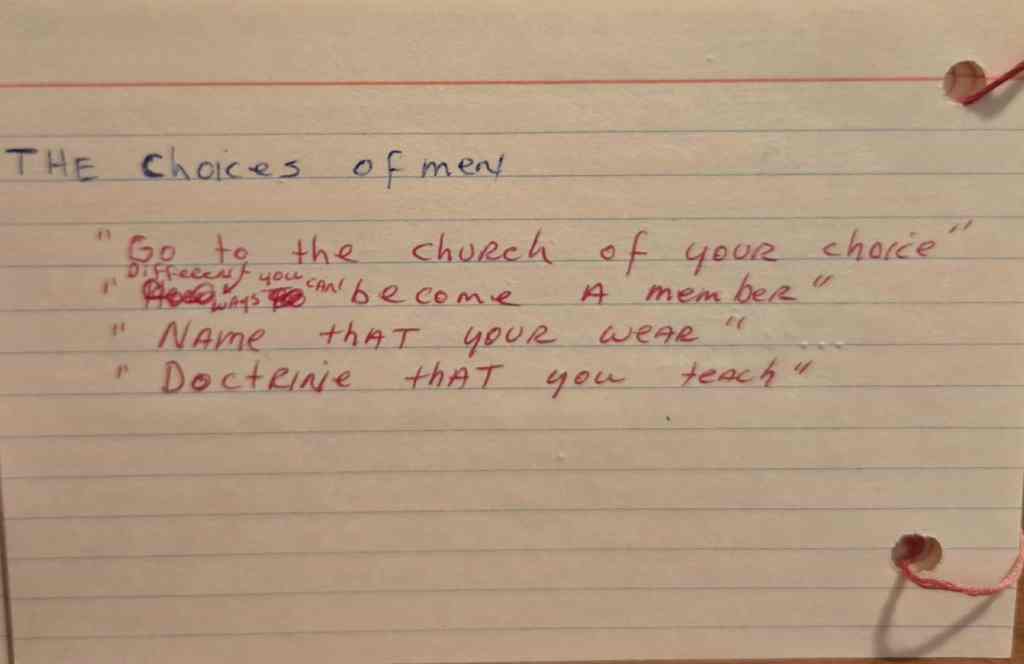 THE Choices of men
"Go to the church of your choice"
"Different ways you can become A member"
"Name that your wear"
"Doctrine that you teach"